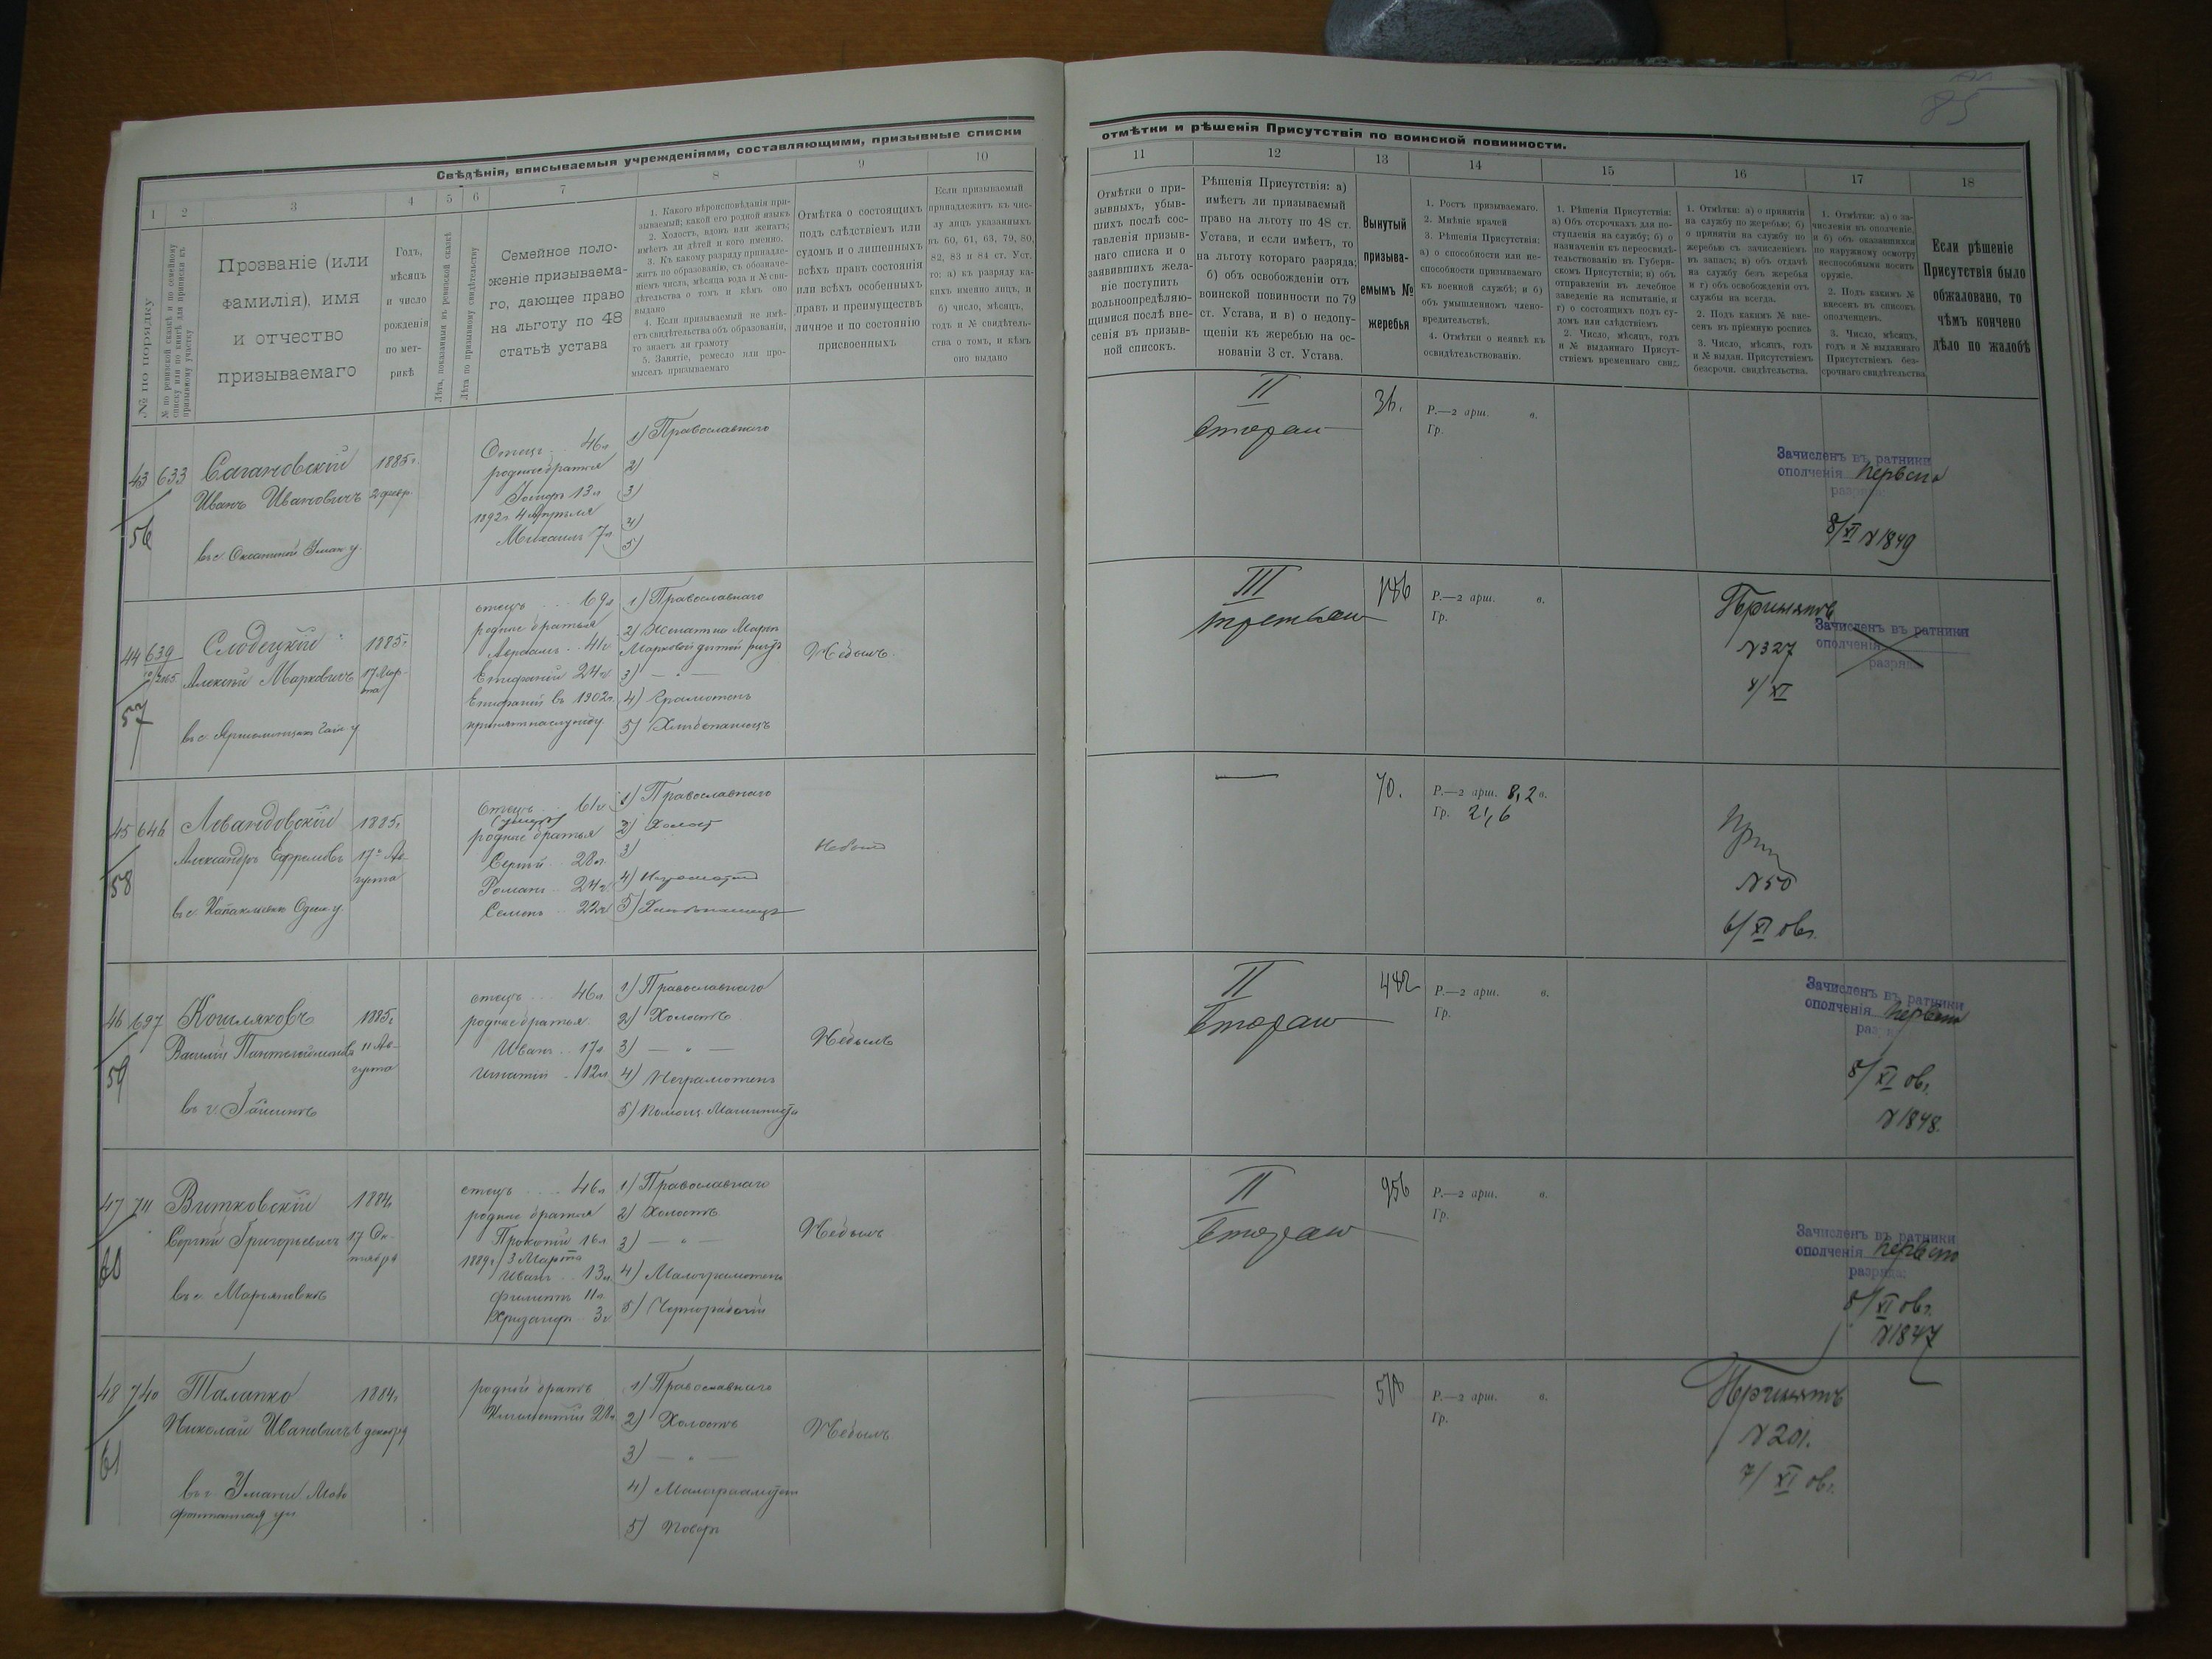 85
Свѣдѣнія, вписываемыя учрежденіями, составляющими, призывные списки
отмѣтки и рѣшенія Присутствія по воинской повинности.
1 2 3 4 5 6 7 8 9 10
11 12 13 14 15 16 17 18
№ по порядку
№ по ревизской сказкѣ и по семейному
списку или по книгѣ для приписки къ
призывному участку
Прозваніе (или
фамилія), имя
и отчество
призываемаго
Годъ,
мѣсяцъ
и число
рожденія
по мет-
рикѣ
Лѣта, показанныя въ ревизской сказкѣ
Лѣта по призывному свидѣтельству
Семейное поло-
женіе призываема-
го, дающее право
на льготу по 48
статьѣ устава
1. Какого вѣроисповѣданія при-
зываемый; какой его родной языкъ
2. Холостъ, вдовъ или женатъ;
имѣетъ ли дѣтей и кого именно.
3. Къ какому разряду принадле-
житъ по образованію, съ обозначе-
ніемъ числа, мѣсяца года и № сви-
дѣтельства о томъ и кѣмъ оно
выдано
4. Если призываемый не имѣ-
етъ свидѣтельства объ образованіи,
то знаетъ ли грамоту
5. Занятіе, ремесло или про-
мыселъ призываемаго
Отмѣтка о состоящихъ
подъ слѣдствіемъ или
судомъ и о лишенныхъ
всѣхъ правъ состоянія
или всѣхъ особенныхъ
правъ и преимуществъ
личное и по состоянію
присвоенныхъ
Если призываемый
принадлежитъ къ чис-
лу лицъ указанныхъ
въ 60, 61, 63, 79, 80,
82, 83 и 84 ст. Уст.
то: а) къ разряду ка-
кихъ именно лицъ, и
б) число, мѣсяцъ,
годъ и № свидѣтель-
ства о томъ, и кѣмъ
оно выдано
Отмѣтки о при-
зывныхъ, убыв-
шихъ послѣ сос-
тавленія призыв-
наго списка и о
заявившихъ жела-
ніе поступить
вольноопредѣляю-
щимися послѣ вне-
сенія въ призыв-
ной списокъ.
Рѣшенія Присутствія: а)
имѣетъ ли призываемый
право на льготу по 48 ст.
Устава, и если имѣетъ, то
на льготу котораго разряда;
б) объ освобожденіи отъ
воинской повинности по 79
ст. Устава, и в) о недопу-
щеніи къ жеребью на ос-
нованіи 3 ст. Устава.
Вынутый
призыва-
емымъ №
жеребья
1. Ростъ призываемаго.
2. Мнѣніе врачей
3. Рѣшенія Присутствія:
а) о способности или не-
способности призываемаго
къ военной службѣ; и б)
объ умышленномъ члено-
вредительствѣ,
4. Отмѣтки о неявкѣ къ
освидѣтельствованію.
1. Рѣшенія Присутствія:
а) Объ отсрочкахъ для по-
ступленія на службу; б) о
назначеніи къ переосвидѣ-
тельствованію въ Губерн-
скомъ Присутствіи; в) объ
отправленіи въ лечебное
заведеніе на испытаніе, и
г) о состоящихъ подъ су-
домъ или слѣдствіемъ
2. Число, мѣсяцъ, годъ
и № выданнаго Присут-
ствіемъ временнаго свид.
1. Отмѣтки: а) о принятіи
на службу по жеребью; б)
о принятіи на службу по
жеребью съ зачисленіемъ
въ запасъ; в) объ отдачѣ
на службу безъ жеребья
и г) объ освобожденіи отъ
службы на всегда.
2. Подъ какимъ № вне-
сенъ въ пріемную роспись
3. Число, мѣсяцъ, годъ
и № выдан. Присутствіемъ
безсрочн. свидѣтельства.
1. Отмѣтки: а) о за-
численіи въ ополченіе,
и б) объ оказавшихся
по наружному осмотру
неспособными носить
оружіе.
2. Подъ какимъ №
внесенъ въ списокъ
ополченцевъ.
3. Число, мѣсяцъ,
годъ и № выданнаго
Присутствіемъ без-
срочнаго свидѣтельства
Если рѣшеніе
Присутствія было
обжаловано, то
чѣмъ кончено
дѣло по жалобѣ
43 633 Сагановскій 1885г.
Иванъ Ивановичъ 2 февр.
56
Отецъ 46л
родные братья
Іосифъ 13л
1892г. 4 Апрѣля
Михаилъ 7л
1) Православнаго
2)
3)
4)
5)
II
вторая
36.
Р.—2 арш. в.
Гр.
Зачисленъ въ ратники
ополченія перваго
разряда:
8/XI №1849
44 639 Слободецкій 1885г
Алексѣй Марковичъ 17 Мар-
та
57
отецъ 69л
родные братья
Авраамъ 41г
Епифаній 24г
Епифаній въ 1902г.
принятъ на службу
1) Православнаго
3) — " —
4) Грамотенъ
5) Хлѣбопашецъ
Небылъ
III
третья
Р.—2 арш. в.
Гр.
Принятъ
№327
8/XI
Зачисленъ въ ратники
ополченія
разряда
45 646 Левандовскій 1885г
Александръ Ефремовъ 17го Ав-
густа
58
Отецъ 61г
(умеръ)
родные братья
Сергѣй 28л
Романъ 24г
Семенъ 22г
1) Православнаго
2) Холостъ
3)
4) Неграмотный
5) Хлѣбопашецъ
Небылъ
—
70.
Р.—2 арш. 8,2 в.
Гр. 21,6
Прин
№50
6/XI 06г.
46 697 Кошляковъ 1885г
Василій Пантелеймоновъ 11 Ав-
густа
59
отецъ 46л
родные братья
Иванъ 17л
Игнатій 12л
1) Православнаго
2) Холостъ
3) — " —
4) Неграмотенъ
5) Помощ. Машиниста
Небылъ
II
Вторая
442
Р.—2 арш. в.
Гр.
Зачисленъ въ ратники
ополченія перваго
разр
8/XI 06г.
№1848.
47 711 Витковскій 1884г
Сергѣй Григорьевичъ 17 Ок-
тября
въ с. Марьяновкѣ
60
отецъ 46л
родные братья
Прокопій 16л
1889г. 3 Марта
Иванъ 13л
Филиппъ 11л
3г
1) Православнаго
2) Холостъ
3) — " —
4) Малограмотенъ
5) Чернорабочій
Небылъ
II
Вторая
956
Р.—2 арш. в.
Гр.
Зачисленъ въ ратники
ополченія перваго
разряда:
8/XI 06г.
№1847
48 740 Талапко 1884г
Николай Ивановичъ декабря
въ г. Умани
61
родной братъ
Климентій 28л
1) Православнаго
2) Холостъ
3) — " —
4) Малограмотенъ
5) Поваръ
Небылъ
Р.—2 арш. в.
Гр.
Принятъ
№201.
7/XI 06г.